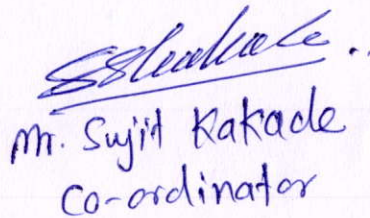 Mr. Sujit Kakade
Co-ordinator